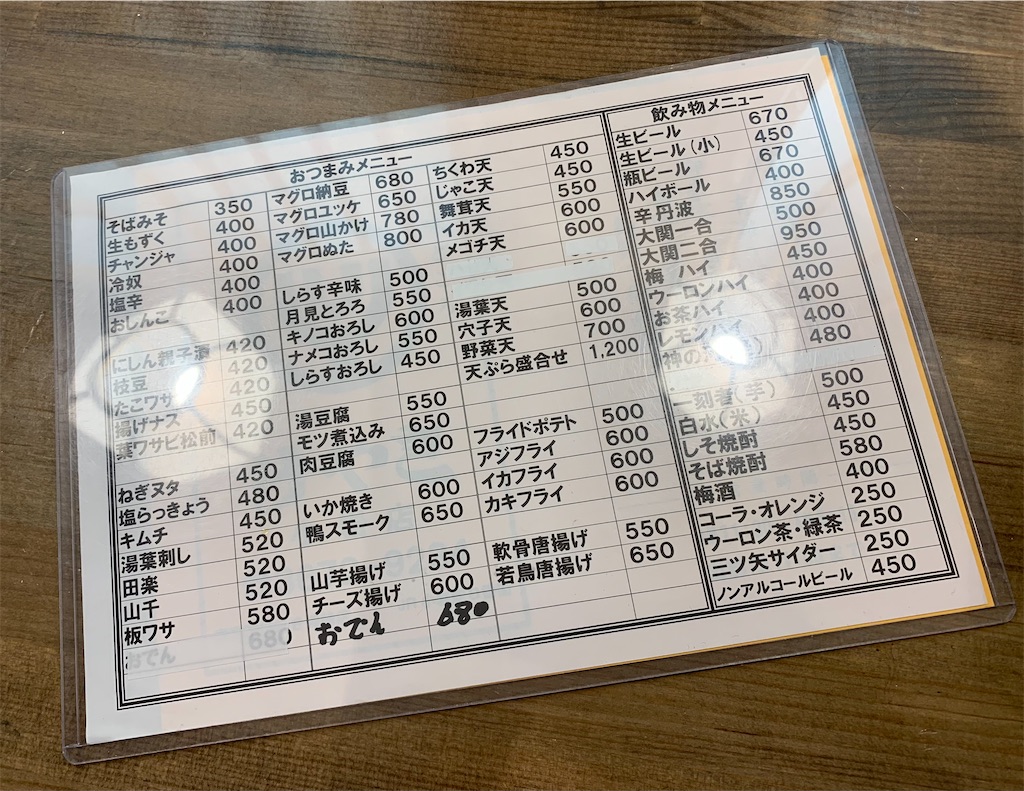 おつまみメニュー
そばみそ 350
生もずく 400
チャンジャ 400
冷奴 400
塩辛 400
おしんこ 400
にしん親子漬 420
枝豆 420
たこワサ 420
揚げナス 450
葉ワサビ松前 420
ねぎヌタ 450
塩らっきょう 480
キムチ 450
湯葉刺し 520
田楽 520
山千 520
板ワサ 580
おでん 680
マグロ納豆 680
マグロユッケ 650
マグロ山かけ 780
マグロぬた 800
しらす辛味 500
月見とろろ 550
キノコおろし 600
ナメコおろし 550
しらすおろし 450
湯豆腐 550
モツ煮込み 650
肉豆腐 600
いか焼き 600
鴨スモーク 650
山芋揚げ 550
チーズ揚げ 600
おでん 680
ちくわ天 450
じゃこ天 450
舞茸天 550
イカ天 600
メゴチ天 600
湯葉天 500
穴子天 600
野菜天 700
天ぷら盛合せ 1,200
フライドポテト 500
アジフライ 600
イカフライ 600
カキフライ 600
軟骨唐揚げ 550
若鳥唐揚げ 650
飲み物メニュー
生ビール 670
生ビール(小) 450
瓶ビール 670
ハイボール 400
辛丹波 850
大関一合 500
大関二合 950
梅 ハイ 450
ウーロンハイ 400
お茶ハイ 400
レモンハイ 400
神の 480
一刻者(芋) 500
白水(米) 450
しそ焼酎 450
そば焼酎 580
梅酒 400
コーラ・オレンジ 250
ウーロン茶・緑茶 250
三ツ矢サイダー 250
ノンアルコールビール 450